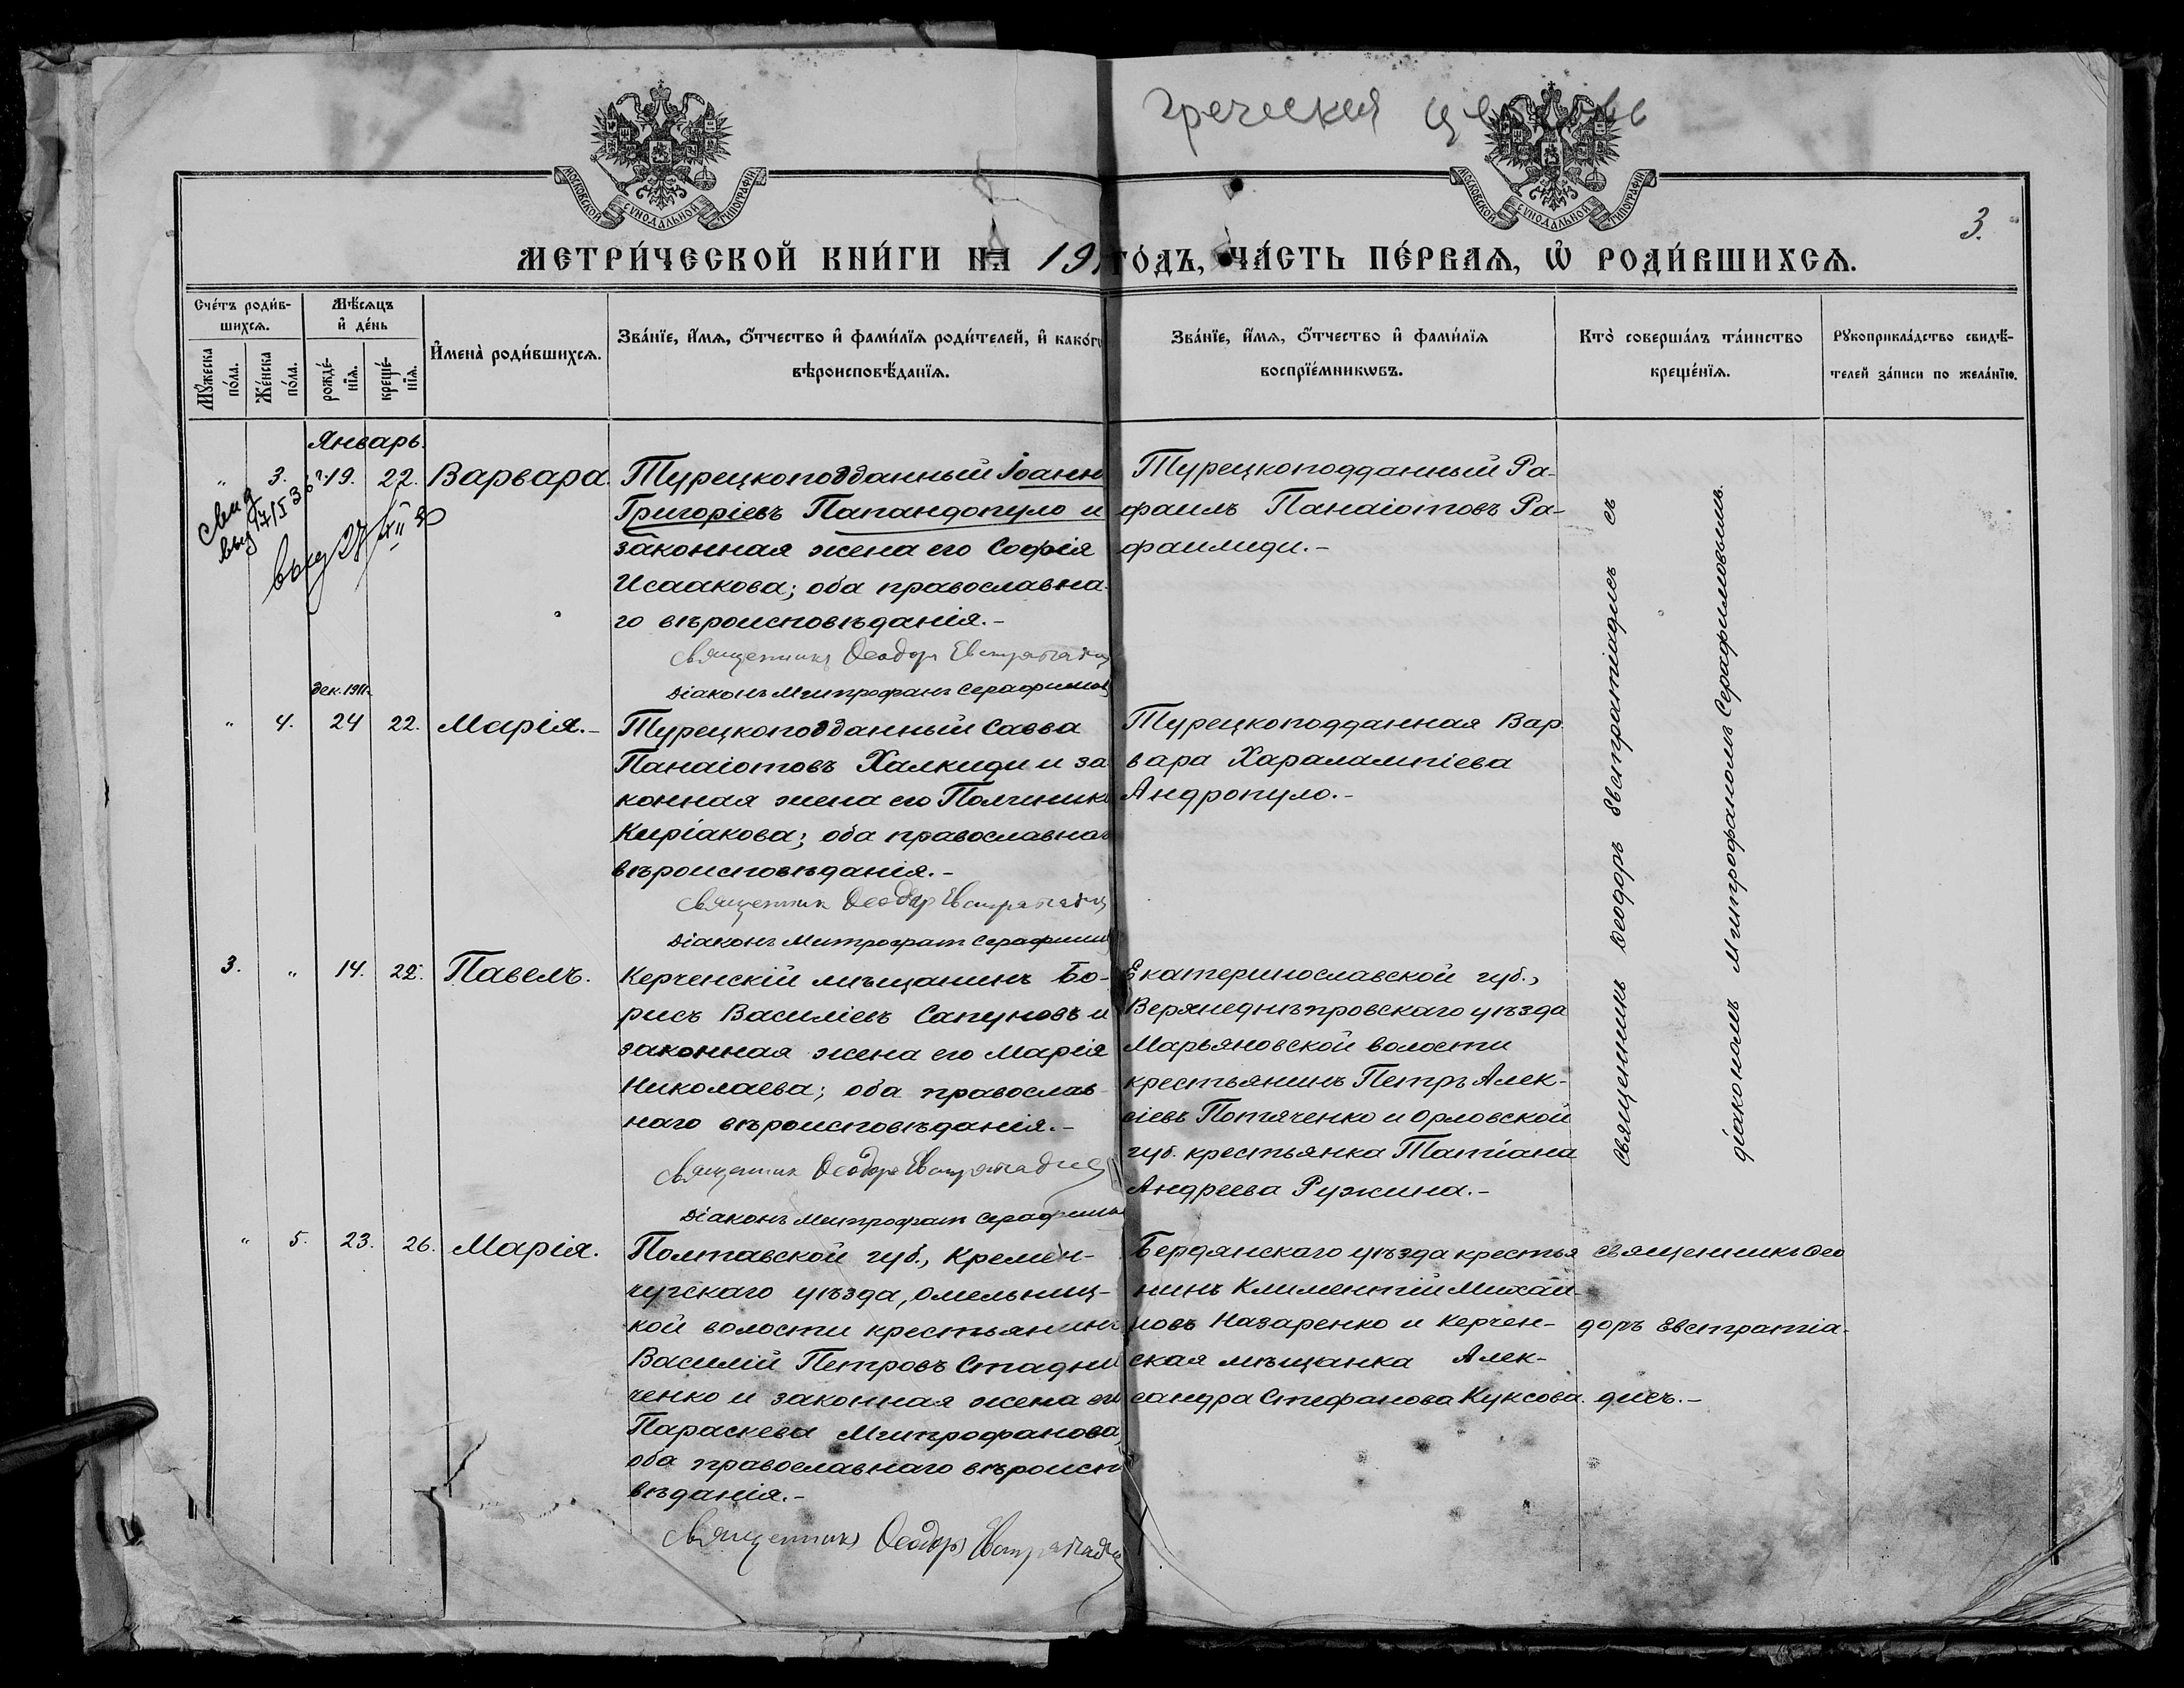 греческия
МОСКОВСКОЙ СУНОДАЛЬНОЙ ТИПОГРАФІИ
МОСКОВСКОЙ СУНОДАЛЬНОЙ ТИПОГРАФІИ
3.
МЕТРИ́ЧЕСКОЙ КНИ́ГИ НА 191 ГО́ДЪ, ЧА́СТЬ ПЕ́РВАѦ, Ѡ҆ РОДИ́ВШИХСѦ.
Сче́тъ роди́в-
шихсѧ.
Мꙋ́жеска
по́ла.
Же́нска
по́ла.
Мѣ́сѧцъ
и҆ де́нь
рожде́-
нїѧ.
креще́-
нїѧ.
И҆мена̀ роди́вшихсѧ.
Зва́нїе, и҆́мѧ, ѻ҆́тчество и҆ фами́лїѧ роди́телей, и҆ како́гѡ
вѣроисповѣ́данїѧ.
Зва́нїе, и҆́мѧ, ѻ҆́тчество и҆ фами́лїѧ
воспрїе́мникѡвъ.
Кто̀ соверша́лъ та́инство
креще́нїѧ.
Рꙋкоприкла́дство свидѣ́-
телей за́писи по жела́нїю.
Январь.
" 3. 19. 22. Варвара.
свид
выд
выд 27
Турецкоподданный Іоаннъ
Григоріевъ Папандопуло и
законная жена его Софія
Исаакова; оба православна-
го вѣроисповѣданія.-
Священникъ Ѳеодоръ Евстратіадис
Діаконъ Митрофанъ Серафимов
Турецкоподданный Ра-
фаилъ Панаіотовъ Ра-
фаилиди.-
дек. 1911г.
" 4. 24 22. Марія.-
Турецкоподданный Савва
Панаіотовъ Халкиди и за
конная жена его
Киріакова; оба православнаго
вѣроисповѣданія.-
Священник Ѳеодор Евстратіадис
Діаконъ Митрофан Серафимов
Турецкоподданная Вар
вара Харалампіева
Андропуло.-
3. " 14. 22. Павелъ.
Керченскій мѣщанинъ Бо-
рисъ Василіевъ Сапуновъ и
законная жена его Марія
Николаева; оба православ-
наго вѣроисповѣданія.-
Священник Ѳеодоръ Евстратіадис
Діаконъ Митрофан Серафимов
Екатеринославской губ.,
Верхнеднѣпровскаго уѣзда
Марьяновской волости
крестьянинъ Петръ Алек-
сіевъ Потяченко и Орловской
губ. крестьянка Татіана
Андреева Ружина.-
Священникъ Ѳеодоръ Евстратіадисъ съ
діакономъ Митрофаномъ Серафимовымъ.
" 5. 23. 26. Марія.
Полтавской губ., Кремен-
чугскаго уѣзда, Омельниц-
кой волости крестьянинъ
Василій Петровъ Стадни
ченко и законная жена его
Параскева Митрофанова,
оба православнаго вѣроиспо
вѣданія.-
Священникъ Ѳеодоръ Евстратіадис
Бердянскаго уѣзда крестья
нинъ Климентій Михаи-
ловъ Назаренко и Керчен-
ская мѣщанка Алек-
сандра Стефанова Куксова.
Священникъ Ѳео
доръ Евстратіа-
дисъ.-